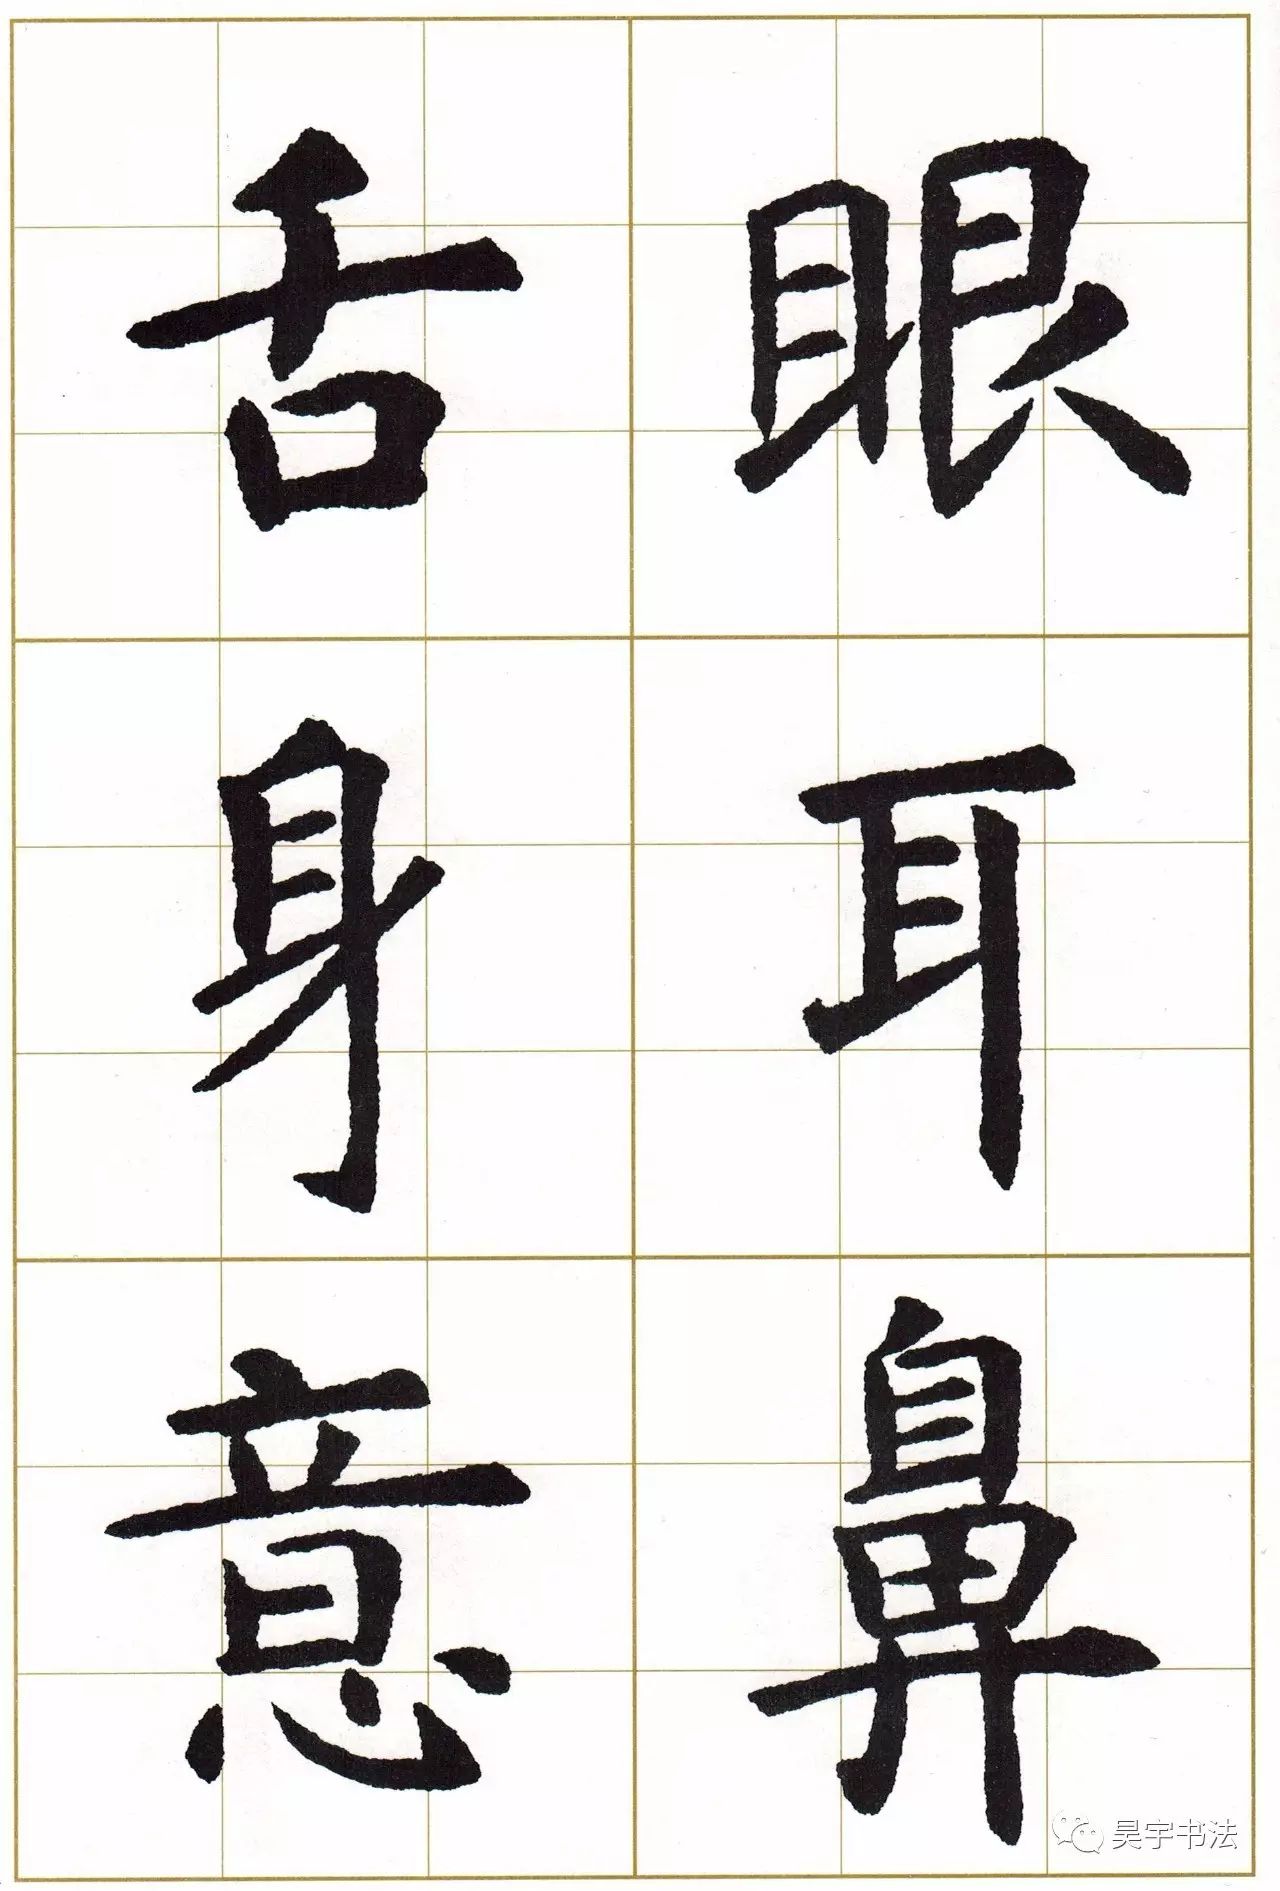 眼耳鼻
舌身意
昊宇书法